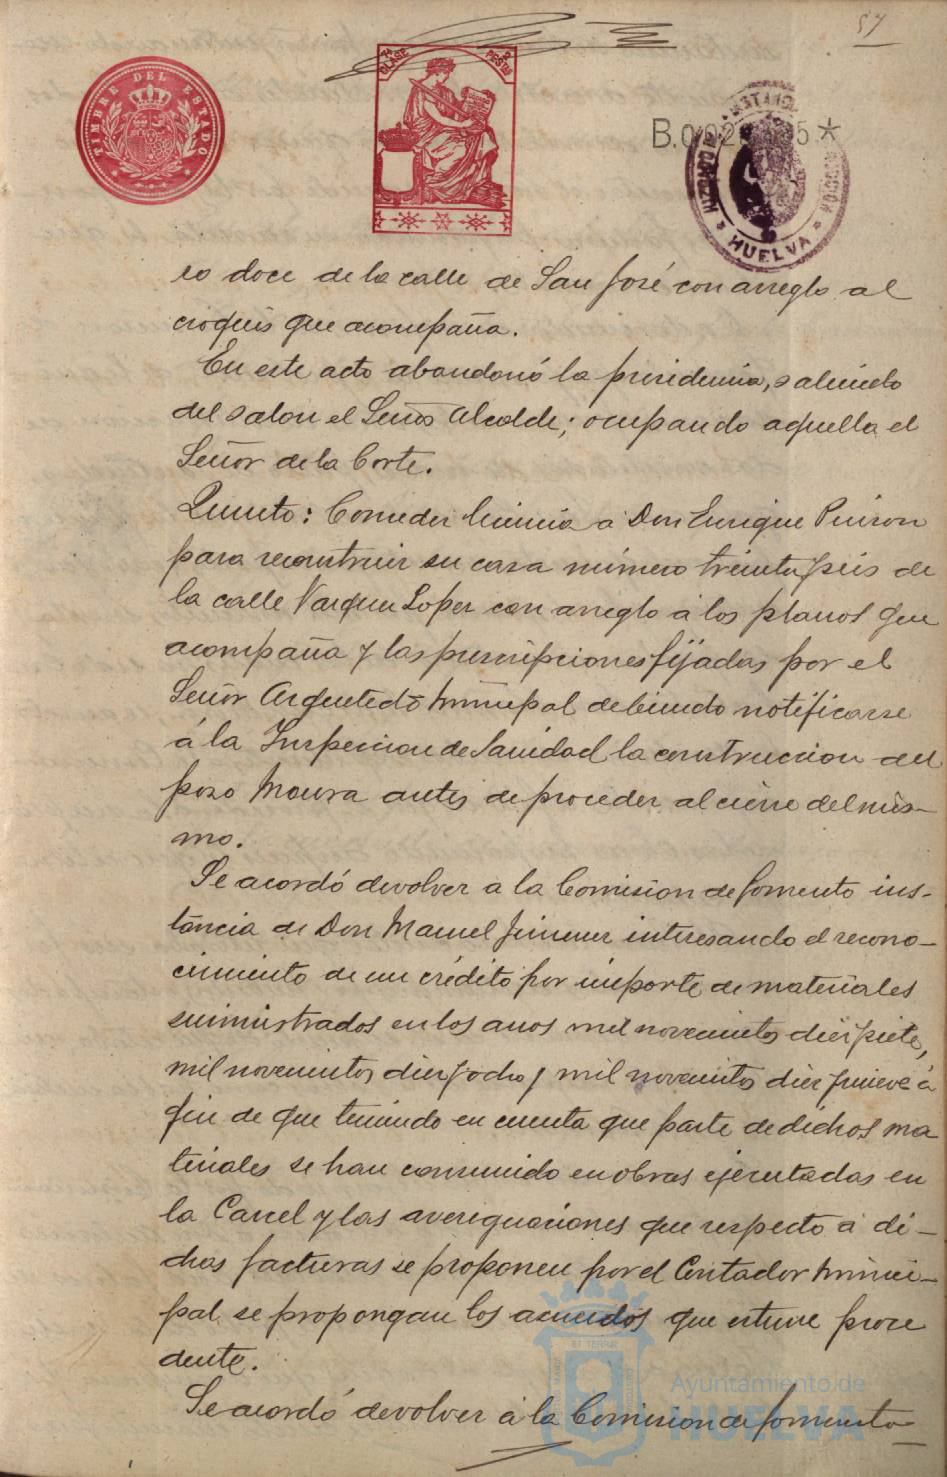 57
TIMBRE DEL ESTADO
7ª CLASE 2 PESTAS
B.0,02 5*
HUELVA
ro doce de la calle de San José con arreglo al
croquis que acompaña.
En este acto abandonó la presidencia, saliendo
del salon el Señor Alcalde; ocupando aquella el
Señor de la Corte.
Quinto: Conceder licencia á Don Enrique
para reconstruir su casa número treinta y seis de
la calle Vazquez Lopez con arreglo á los planos que
acompaña y las prescripciones fijadas por el
Señor Arquitecto Municipal debiendo notificarse
á la Inspeccion de Sanidad la construccion del
pozo Moura antes de proceder al cierre del mis-
mo.
Se acordó devolver á la Comision de fomento ins-
tancia de Don Manuel Jimenez interesando el recono-
cimiento de un crédito por importe de materiales
suministrados en los anos mil novecientos diez y siete,
mil novecientos diez y ocho y mil novecientos diez y nueve á
fin de que teniendo en cuenta que parte de dichos ma
teriales se han consumido en obras ejecutadas en
la Carcel y las averiguaciones que respecto á di-
chas facturas se proponen por el Contador Munici-
pal se propongan los acuerdos que estime proce
dente.
Se acordó devolver á la Comision de fomento
Ayuntamiento de
HUELVA